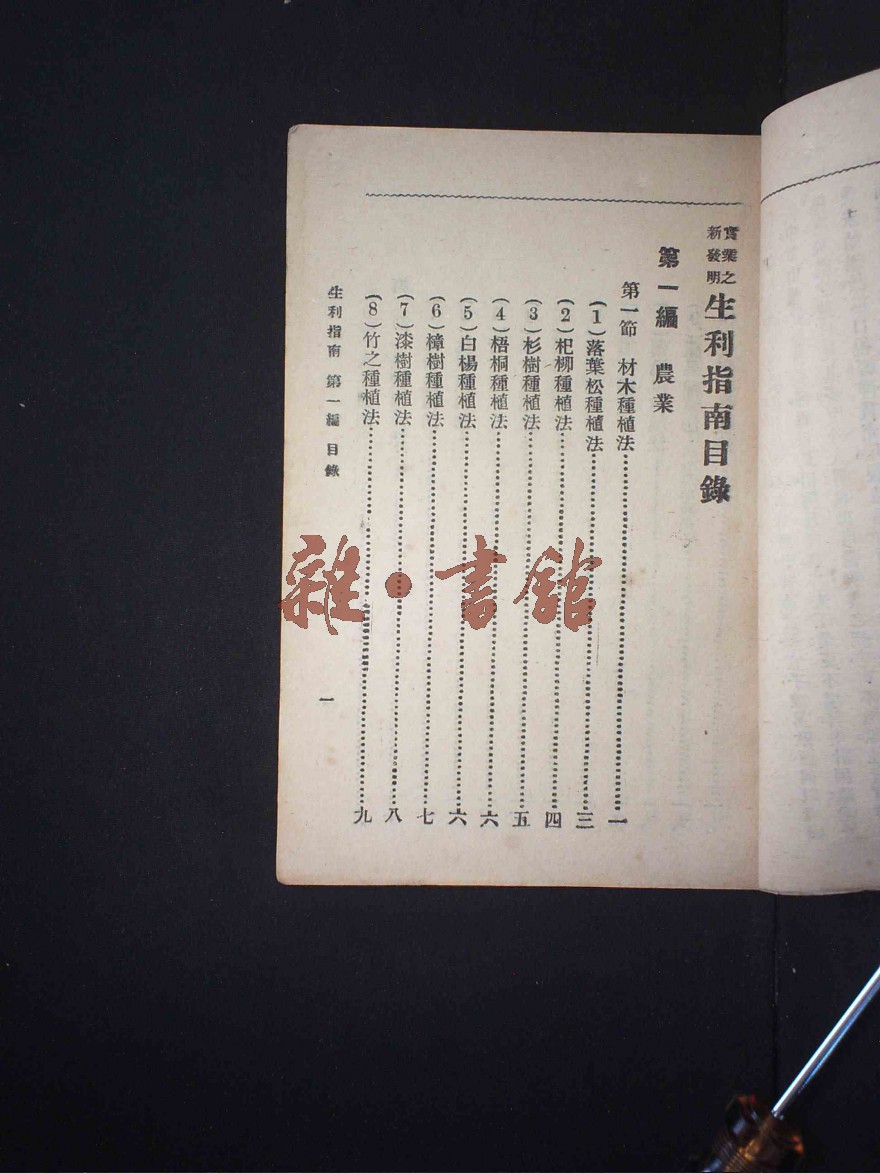 實業之新發明 生利指南目錄
第一編 農業
第一節 材木種植法……一
(1)落葉松種植法……三
(2)杞柳種植法……四
(3)杉樹種植法……五
(4)梧桐種植法……六
(5)白楊種植法……六
(6)樟樹種植法……七
(7)漆樹種植法……八
(8)竹之種植法……九
生利指南 第一編 目錄 一
雜·書館